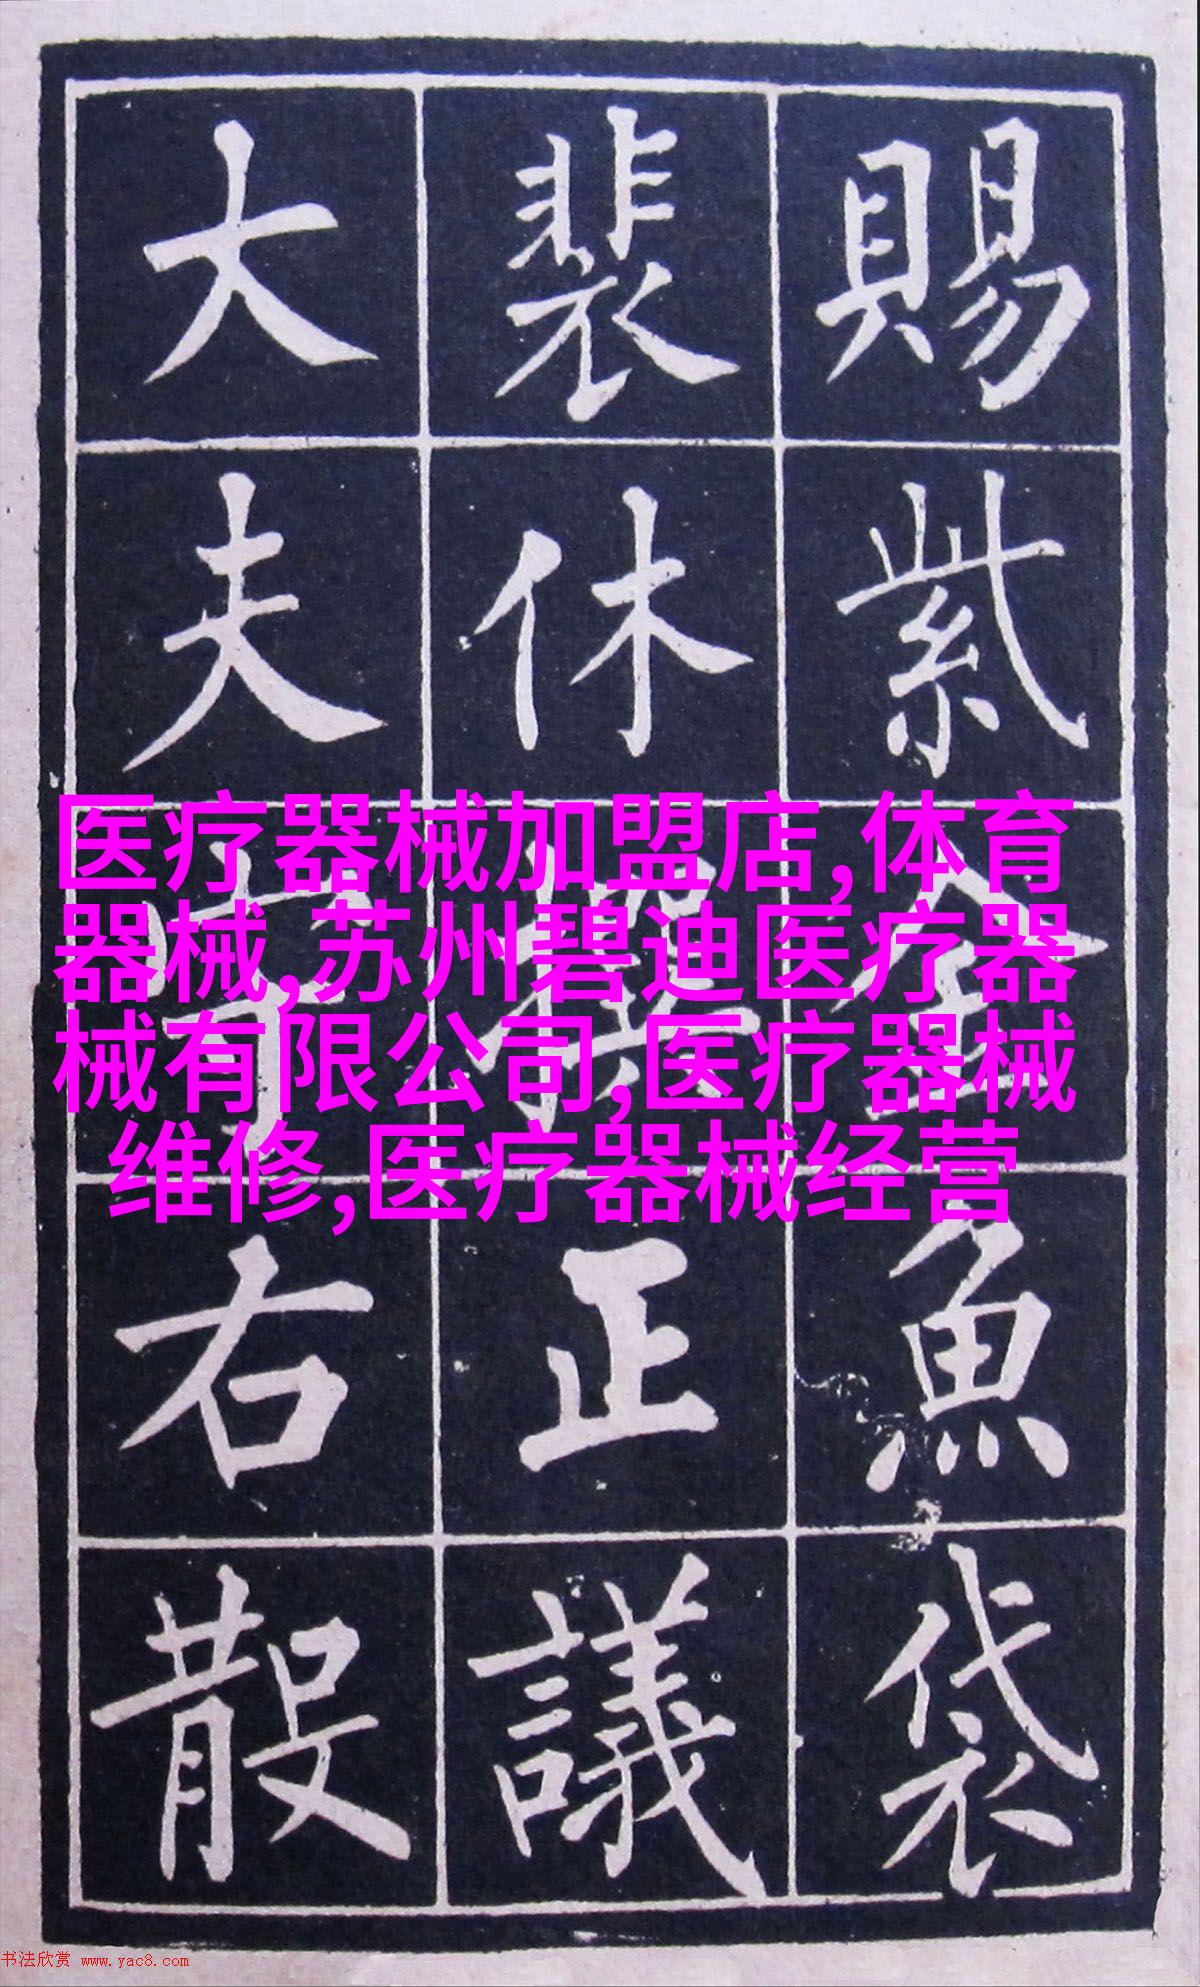 賜紫金魚袋
裴休撰正議
大夫守右散
医疗器械加盟店,体育
器械,苏州碧迪医疗器
械有限公司,医疗器械
维修,医疗器械经营
书法欣赏 www.yac8.com